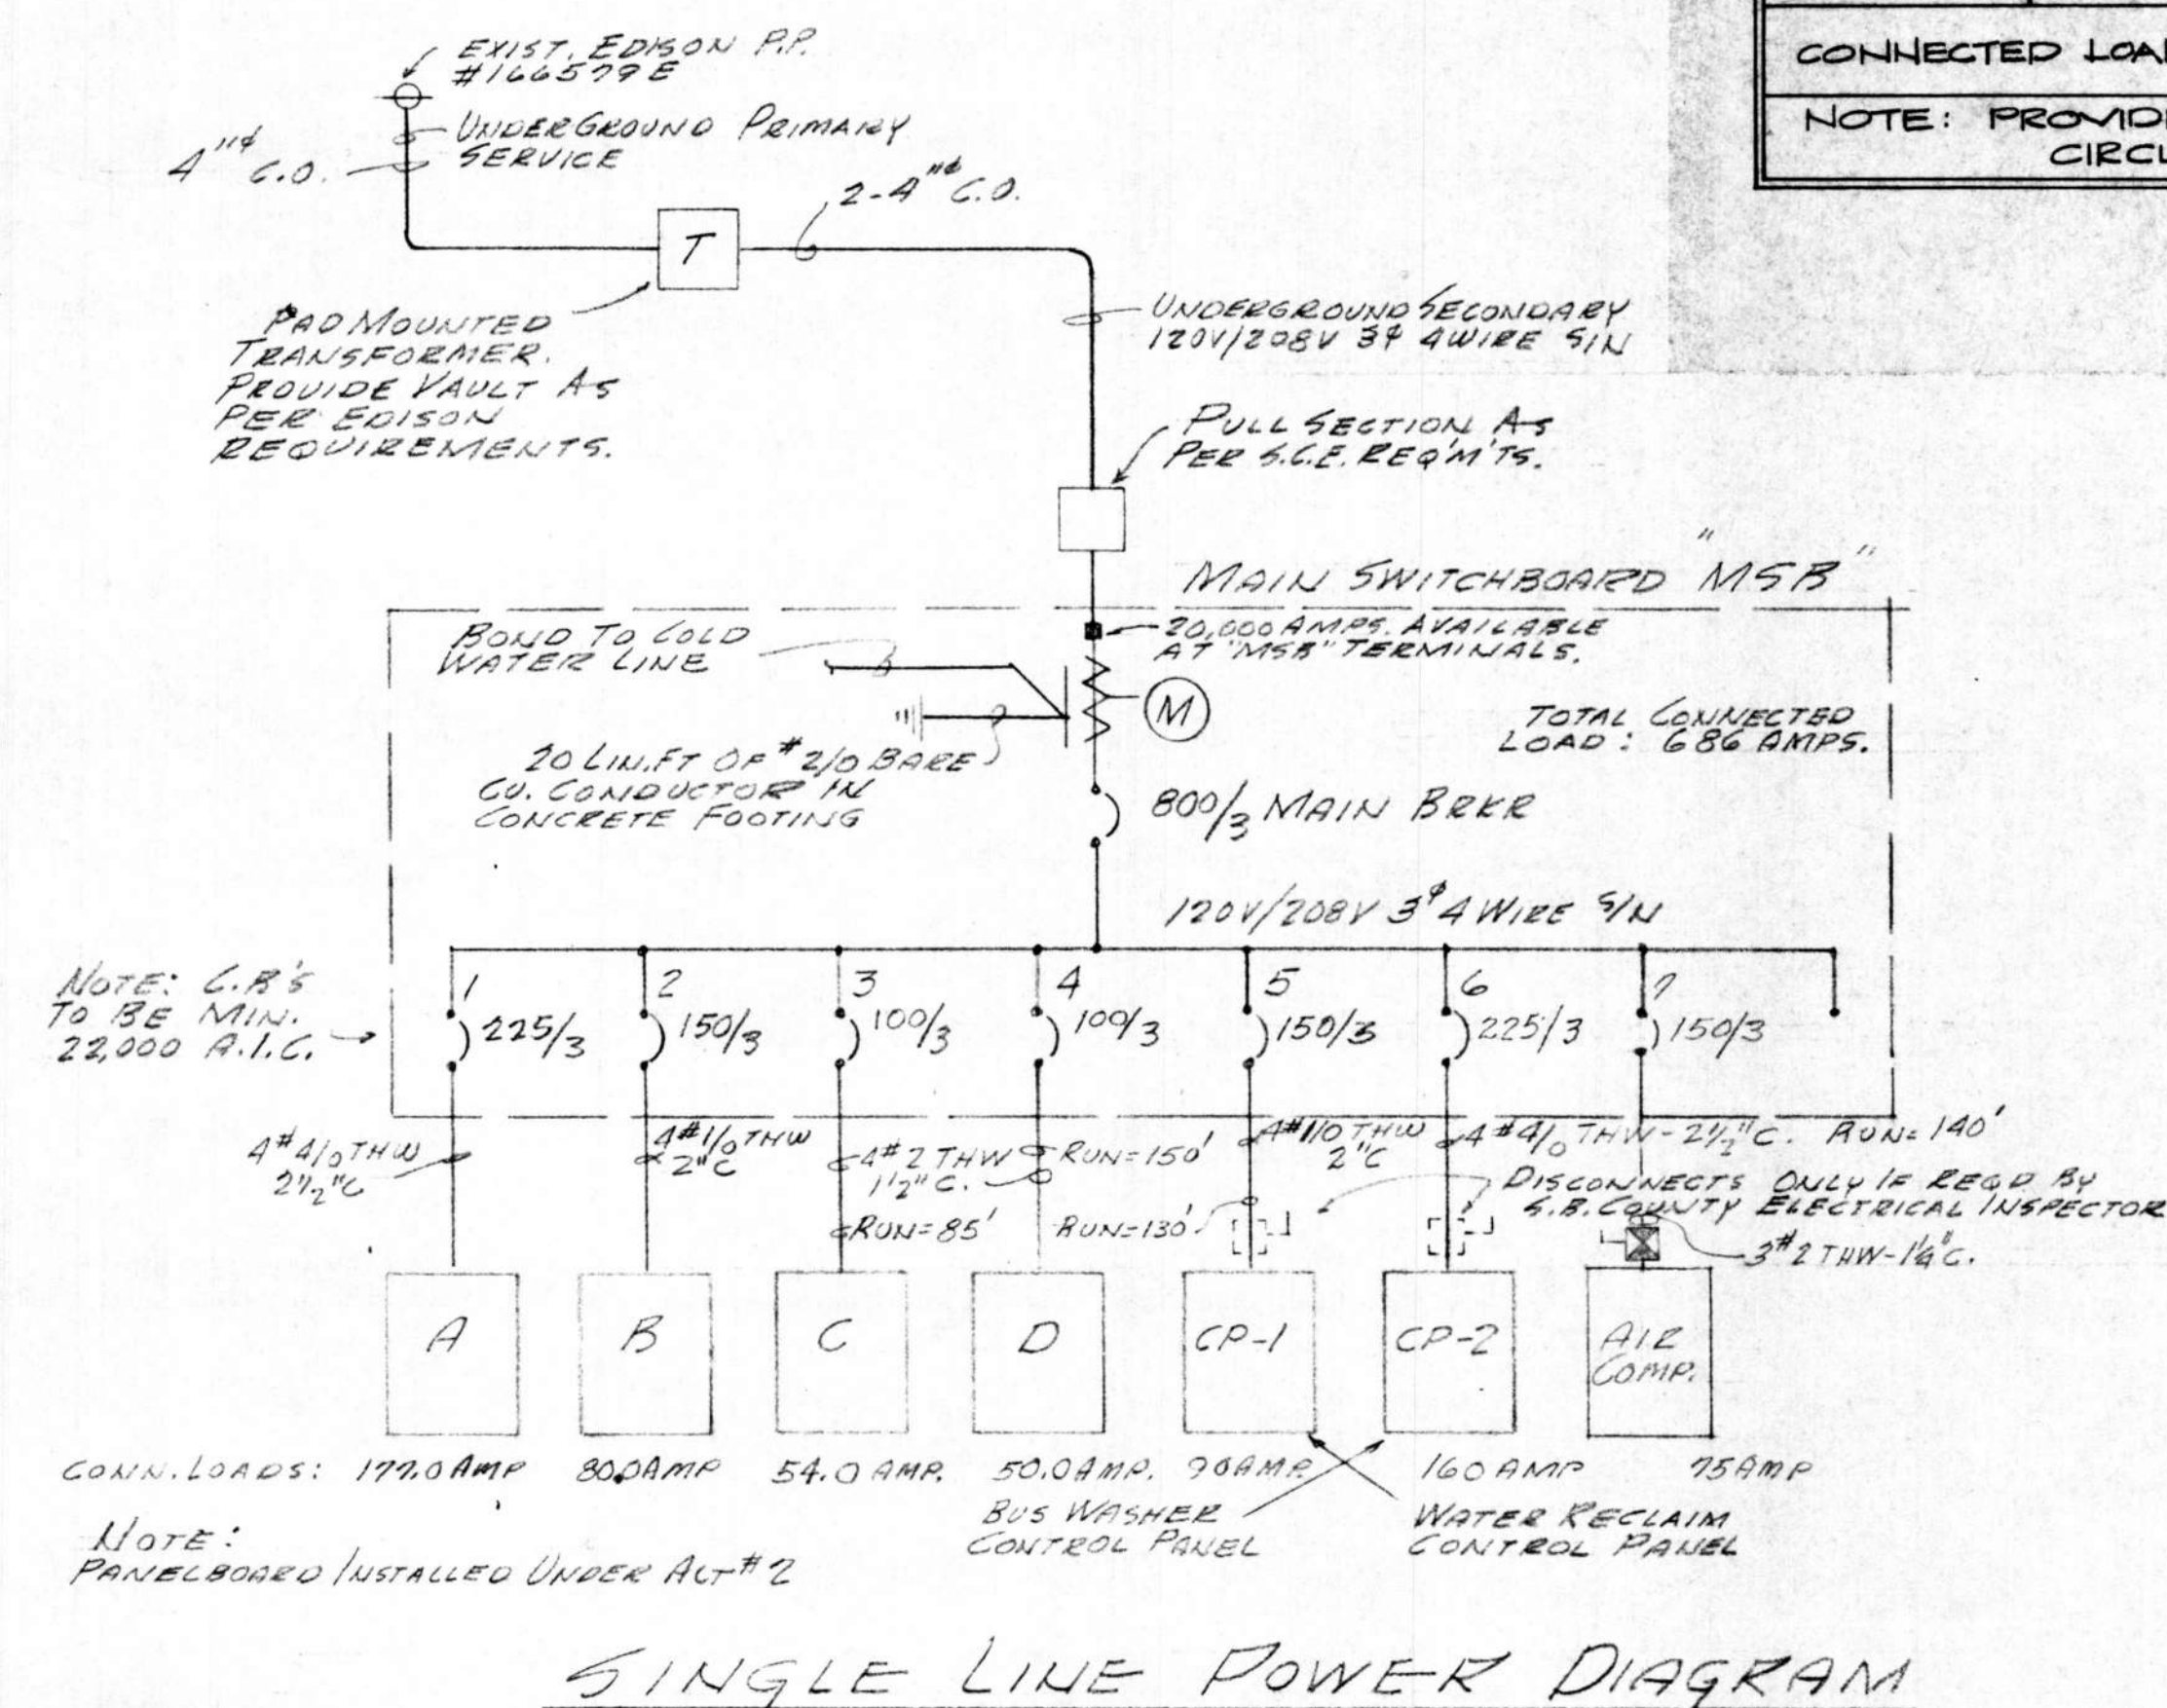 CONNECTED LOA
NOTE: PROVID
CIRC
EXIST. EDISON P.P.
#166579E
UNDERGROUND PRIMARY
SERVICE
4"φ C.O.
2-4"φ C.O.
T
PAD MOUNTED
TRANSFORMER.
PROVIDE VAULT AS
PER EDISON
REQUIREMENTS.
UNDERGROUND SECONDARY
120V/208V 3φ 4WIRE S/N
PULL SECTION AS
PER S.C.E. REQ'M'TS.
MAIN SWITCHBOARD "MSB"
BOND TO COLD
WATER LINE
20,000 AMPS. AVAILABLE
AT "MSB" TERMINALS.
M
TOTAL CONNECTED
LOAD: 686 AMPS.
20 LIN.FT OF #2/0 BARE
CU. CONDUCTOR IN
CONCRETE FOOTING
800/3 MAIN BRKR
120V/208V 3φ 4 WIRE S/N
NOTE: C.B'S
TO BE MIN.
22,000 A.I.C.
1 2 3 4 5 6 7
225/3 150/3 100/3 100/3 150/3 225/3 150/3
4#4/0 THW
2½"C
4#1/0 THW
2"C
4#2 THW
1½"C.
RUN=150'
4#1/0 THW
2"C
4#4/0 THW-2½"C. RUN=140'
DISCONNECTS ONLY IF REQD BY
S.B. COUNTY ELECTRICAL INSPECTOR
RUN=85'
RUN=130'
3#2 THW-1¼"C.
A B C D CP-1 CP-2 AIR
COMP.
CONN. LOADS: 177.0 AMP 80.0 AMP 54.0 AMP. 50.0 AMP. 90 AMP. 160 AMP 75 AMP
BUS WASHER
CONTROL PANEL
WATER RECLAIM
CONTROL PANEL
NOTE:
PANELBOARD INSTALLED UNDER ALT #2
SINGLE LINE POWER DIAGRAM